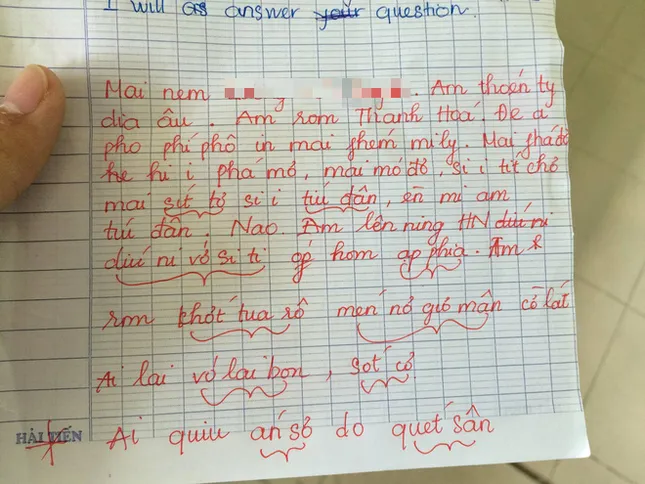 I will as answer your question.
Mai nem . Am thoén ty
dia âu. Am rom Thanh Hoá. Đe a
pho phí phô in mai phem mi ly. Mai phá đơ
he hi i phá mơ, mai mó đơ, si i tít chơ
mai sít tơ si i tiú dân, en mi am
tiú dân. Nao. Am lên ning HN diú ni
diú ni vó si ti ớp hom ap phia. Am
rom thớt tua rô men nơ giơ mân cô lát
Ai lai vó lai bon, sot cơ
HẢI TIẾN Ai quiu án sơ do quet sân